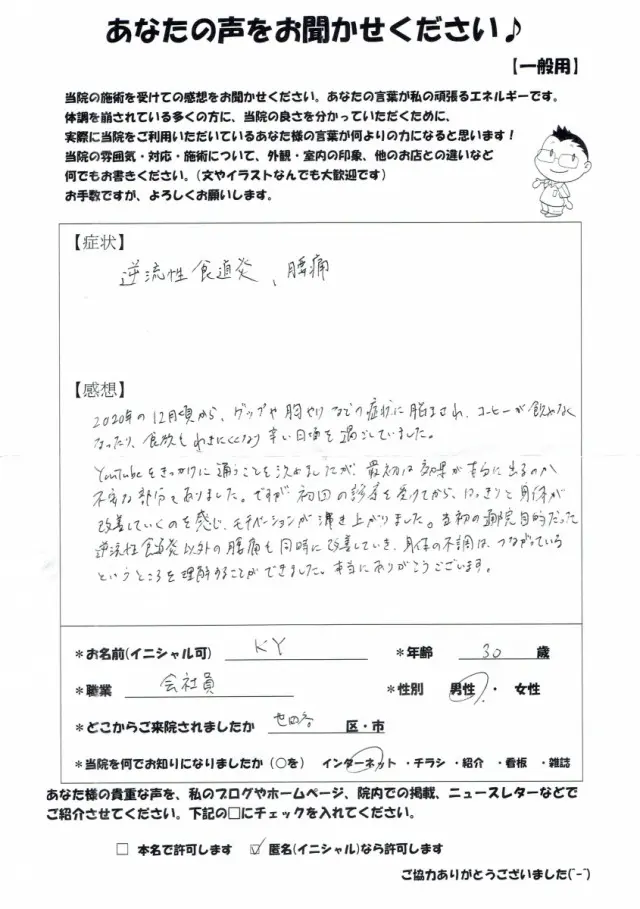 あなたの声をお聞かせください♪
【一般用】
当院の施術を受けての感想をお聞かせください。あなたの言葉が私の頑張るエネルギーです。
体調を崩されている多くの方に、当院の良さを分かっていただくために、
実際に当院をご利用いただいているあなた様の言葉が何よりの力になると思います！
当院の雰囲気・対応・施術について、外観・室内の印象、他のお店との違いなど
何でもお書きください。(文やイラストなんでも大歓迎です)
お手数ですが、よろしくお願いします。
【症状】
逆流性食道炎、腰痛
【感想】
2020年の12月頃から、ゲップや胸やけなどの症状に脳まされ、コーヒーが飲めなく
なったり、食欲もわきにくくなり辛い日頃を過ごしていました。
YouTubeをきっかけに通うことを決めましたが、最初は効果が本当に出るのか
不安な部分もありました。ですが初回の診察を受けてから、はっきりと身体が
改善していくのを感じ、モチベーションが沸き上がりました。当初の通院目的だった
逆流性食道炎以外の腰痛も同時に改善していき、身体の不調は、つながっている
というところを理解することができました。本当にありがとうございます。
＊お名前(イニシャル可) KY ＊年齢 30 歳
＊職業 会社員 ＊性別 男性・女性
＊どこからご来院されましたか 世田谷 区・市
＊当院を何でお知りになりましたか(○を) インターネット・チラシ・紹介・看板・雑誌
あなた様の貴重な声を、私のブログやホームページ、院内での掲載、ニュースレターなどで
ご紹介させてください。下記の□にチェックを入れてください。
□ 本名で許可します ☑ 匿名(イニシャル)なら許可します
ご協力ありがとうございました(^-^)